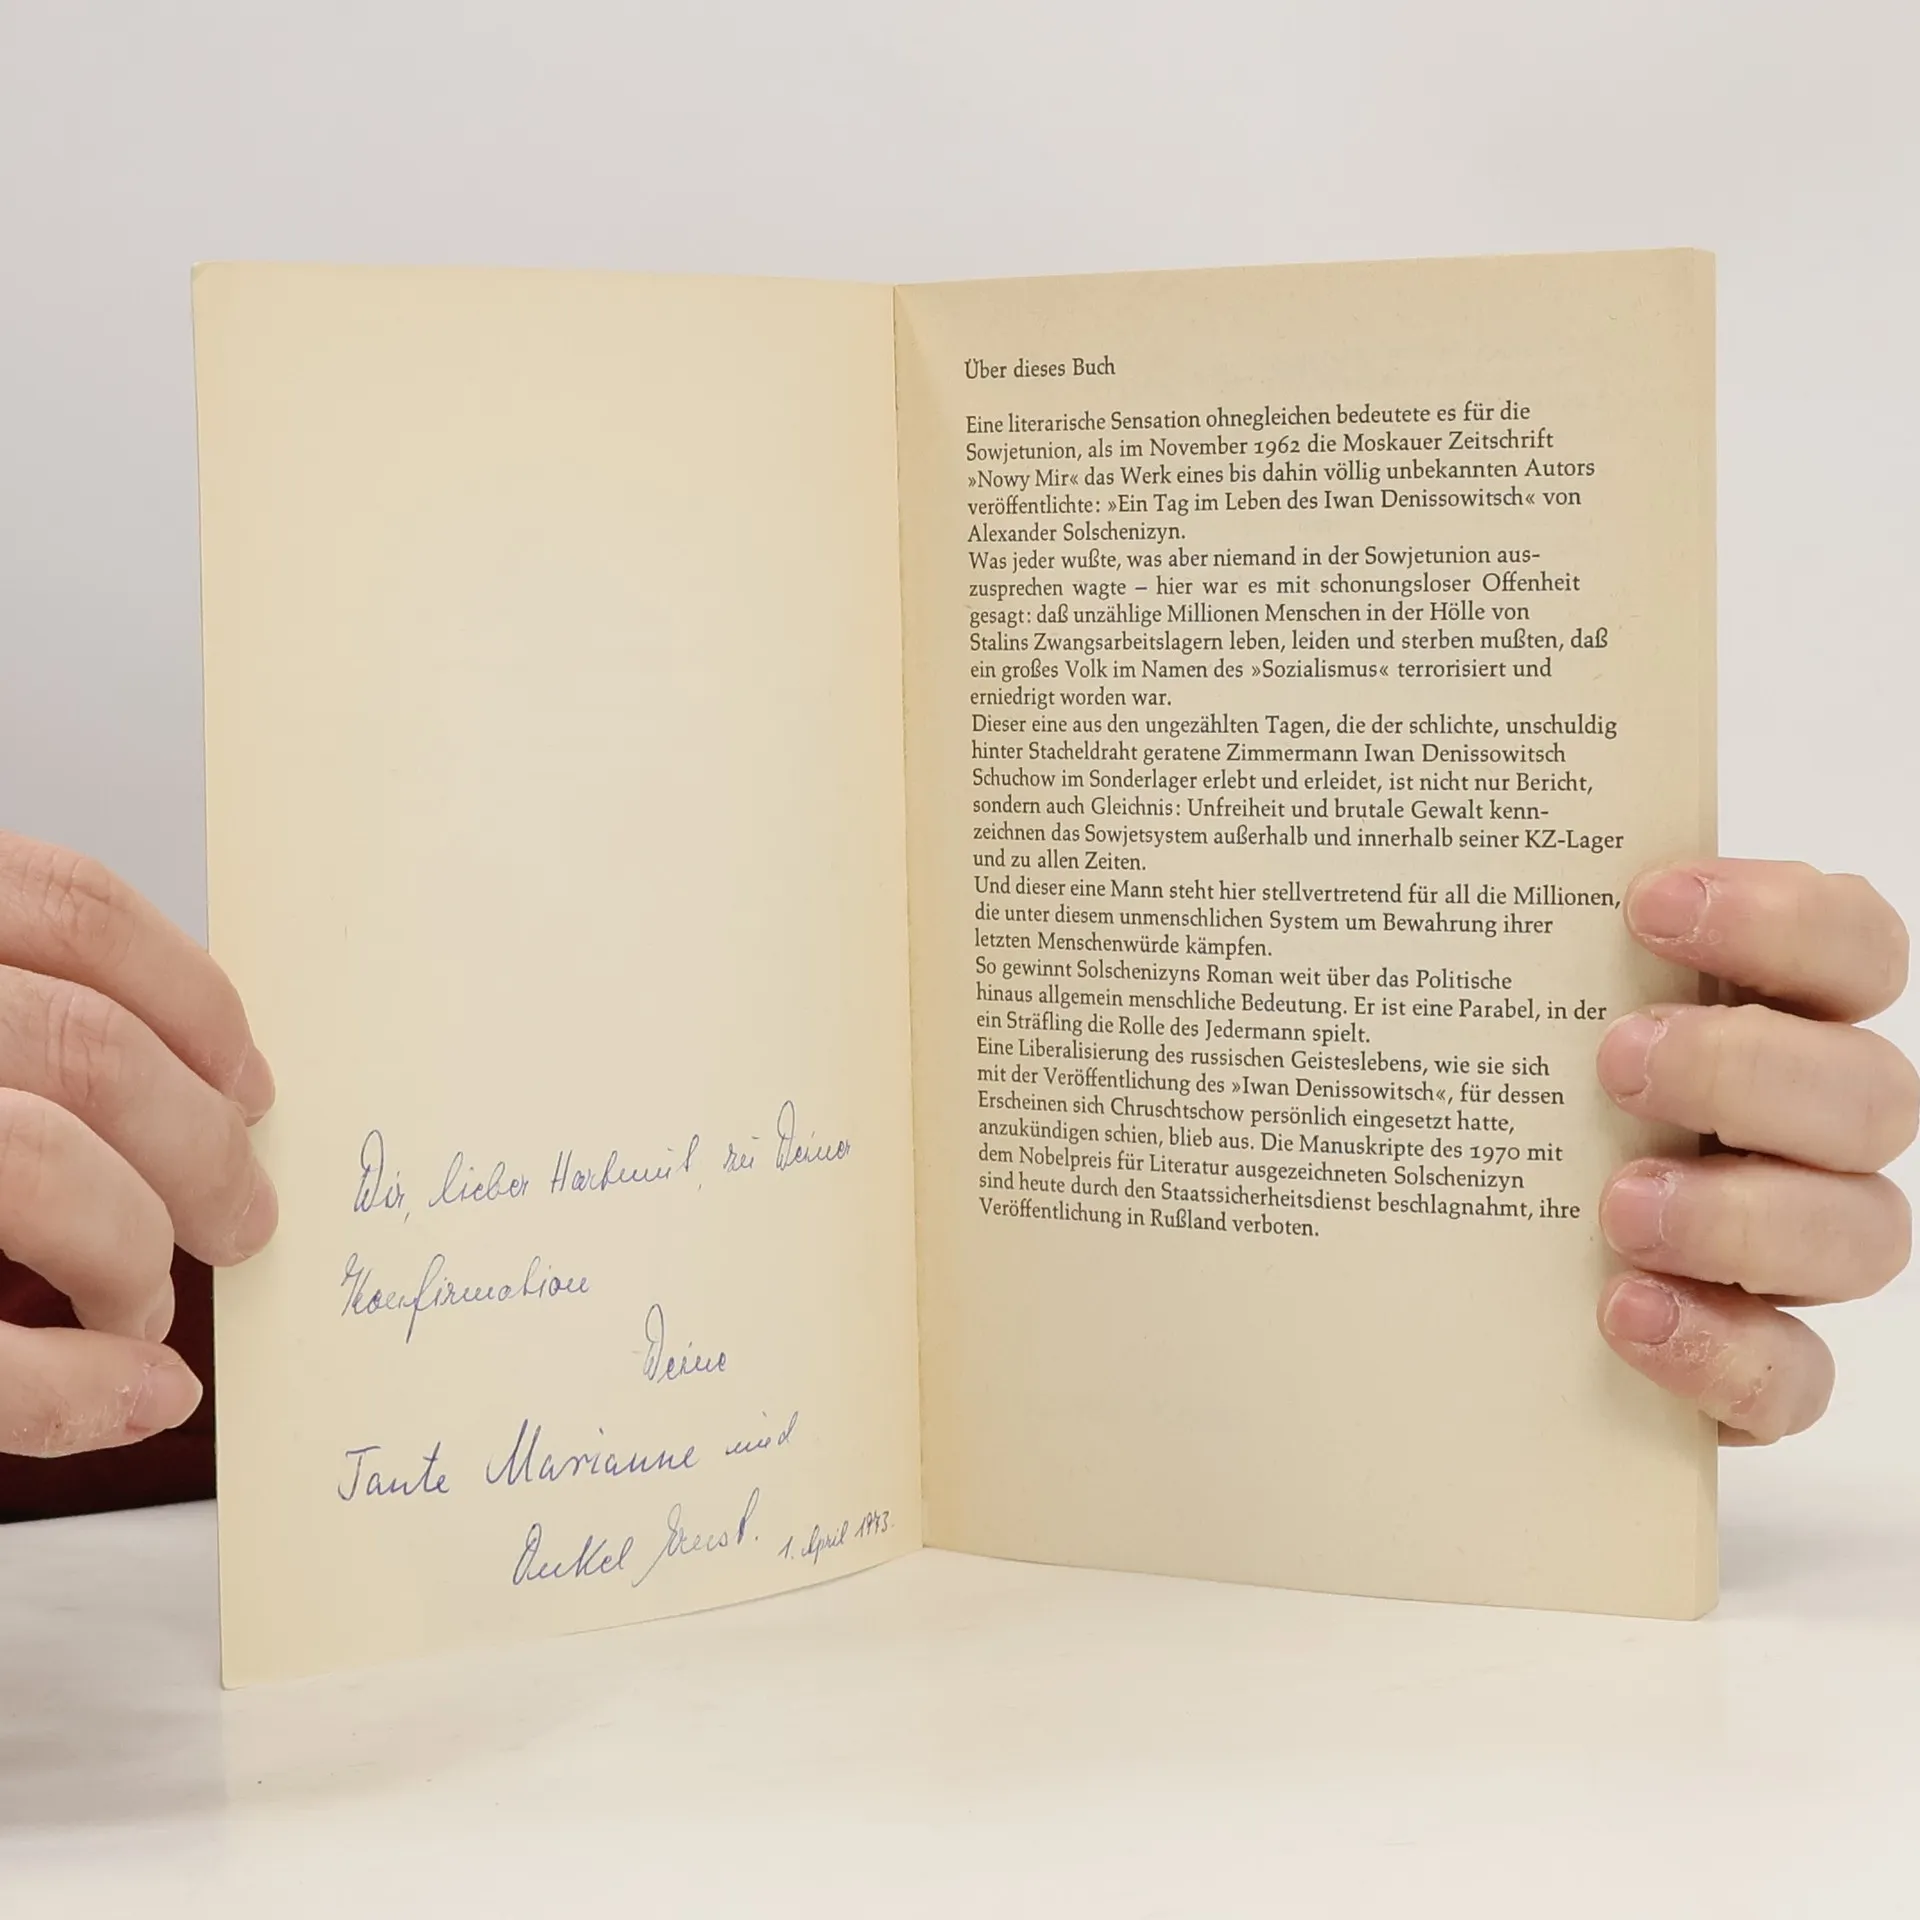 Dir, lieber Hartmut, zu Deiner
Konfirmation
Deine
Tante Marianne und
Onkel Ernst.
1. April 1973.
Über dieses Buch
Eine literarische Sensation ohnegleichen bedeutete es für die
Sowjetunion, als im November 1962 die Moskauer Zeitschrift
»Nowy Mir« das Werk eines bis dahin völlig unbekannten Autors
veröffentlichte: »Ein Tag im Leben des Iwan Denissowitsch« von
Alexander Solschenizyn.
Was jeder wußte, was aber niemand in der Sowjetunion aus-
zusprechen wagte – hier war es mit schonungsloser Offenheit
gesagt: daß unzählige Millionen Menschen in der Hölle von
Stalins Zwangsarbeitslagern leben, leiden und sterben mußten, daß
ein großes Volk im Namen des »Sozialismus« terrorisiert und
erniedrigt worden war.
Dieser eine aus den ungezählten Tagen, die der schlichte, unschuldig
hinter Stacheldraht geratene Zimmermann Iwan Denissowitsch
Schuchow im Sonderlager erlebt und erleidet, ist nicht nur Bericht,
sondern auch Gleichnis: Unfreiheit und brutale Gewalt kenn-
zeichnen das Sowjetsystem außerhalb und innerhalb seiner KZ-Lager
und zu allen Zeiten.
Und dieser eine Mann steht hier stellvertretend für all die Millionen,
die unter diesem unmenschlichen System um Bewahrung ihrer
letzten Menschenwürde kämpfen.
So gewinnt Solschenizyns Roman weit über das Politische
hinaus allgemein menschliche Bedeutung. Er ist eine Parabel, in der
ein Sträfling die Rolle des Jedermann spielt.
Eine Liberalisierung des russischen Geisteslebens, wie sie sich
mit der Veröffentlichung des »Iwan Denissowitsch«, für dessen
Erscheinen sich Chruschtschow persönlich eingesetzt hatte,
anzukündigen schien, blieb aus. Die Manuskripte des 1970 mit
dem Nobelpreis für Literatur ausgezeichneten Solschenizyn
sind heute durch den Staatssicherheitsdienst beschlagnahmt, ihre
Veröffentlichung in Rußland verboten.